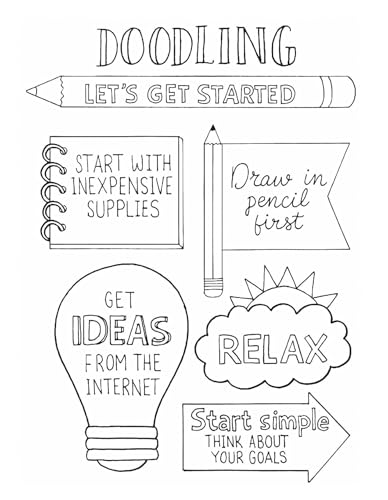 DOODLING
LET'S GET STARTED
START WITH
INEXPENSIVE
SUPPLIES
Draw in
pencil
first
GET
IDEAS
FROM THE
INTERNET
RELAX
Start simple
THINK ABOUT
YOUR GOALS